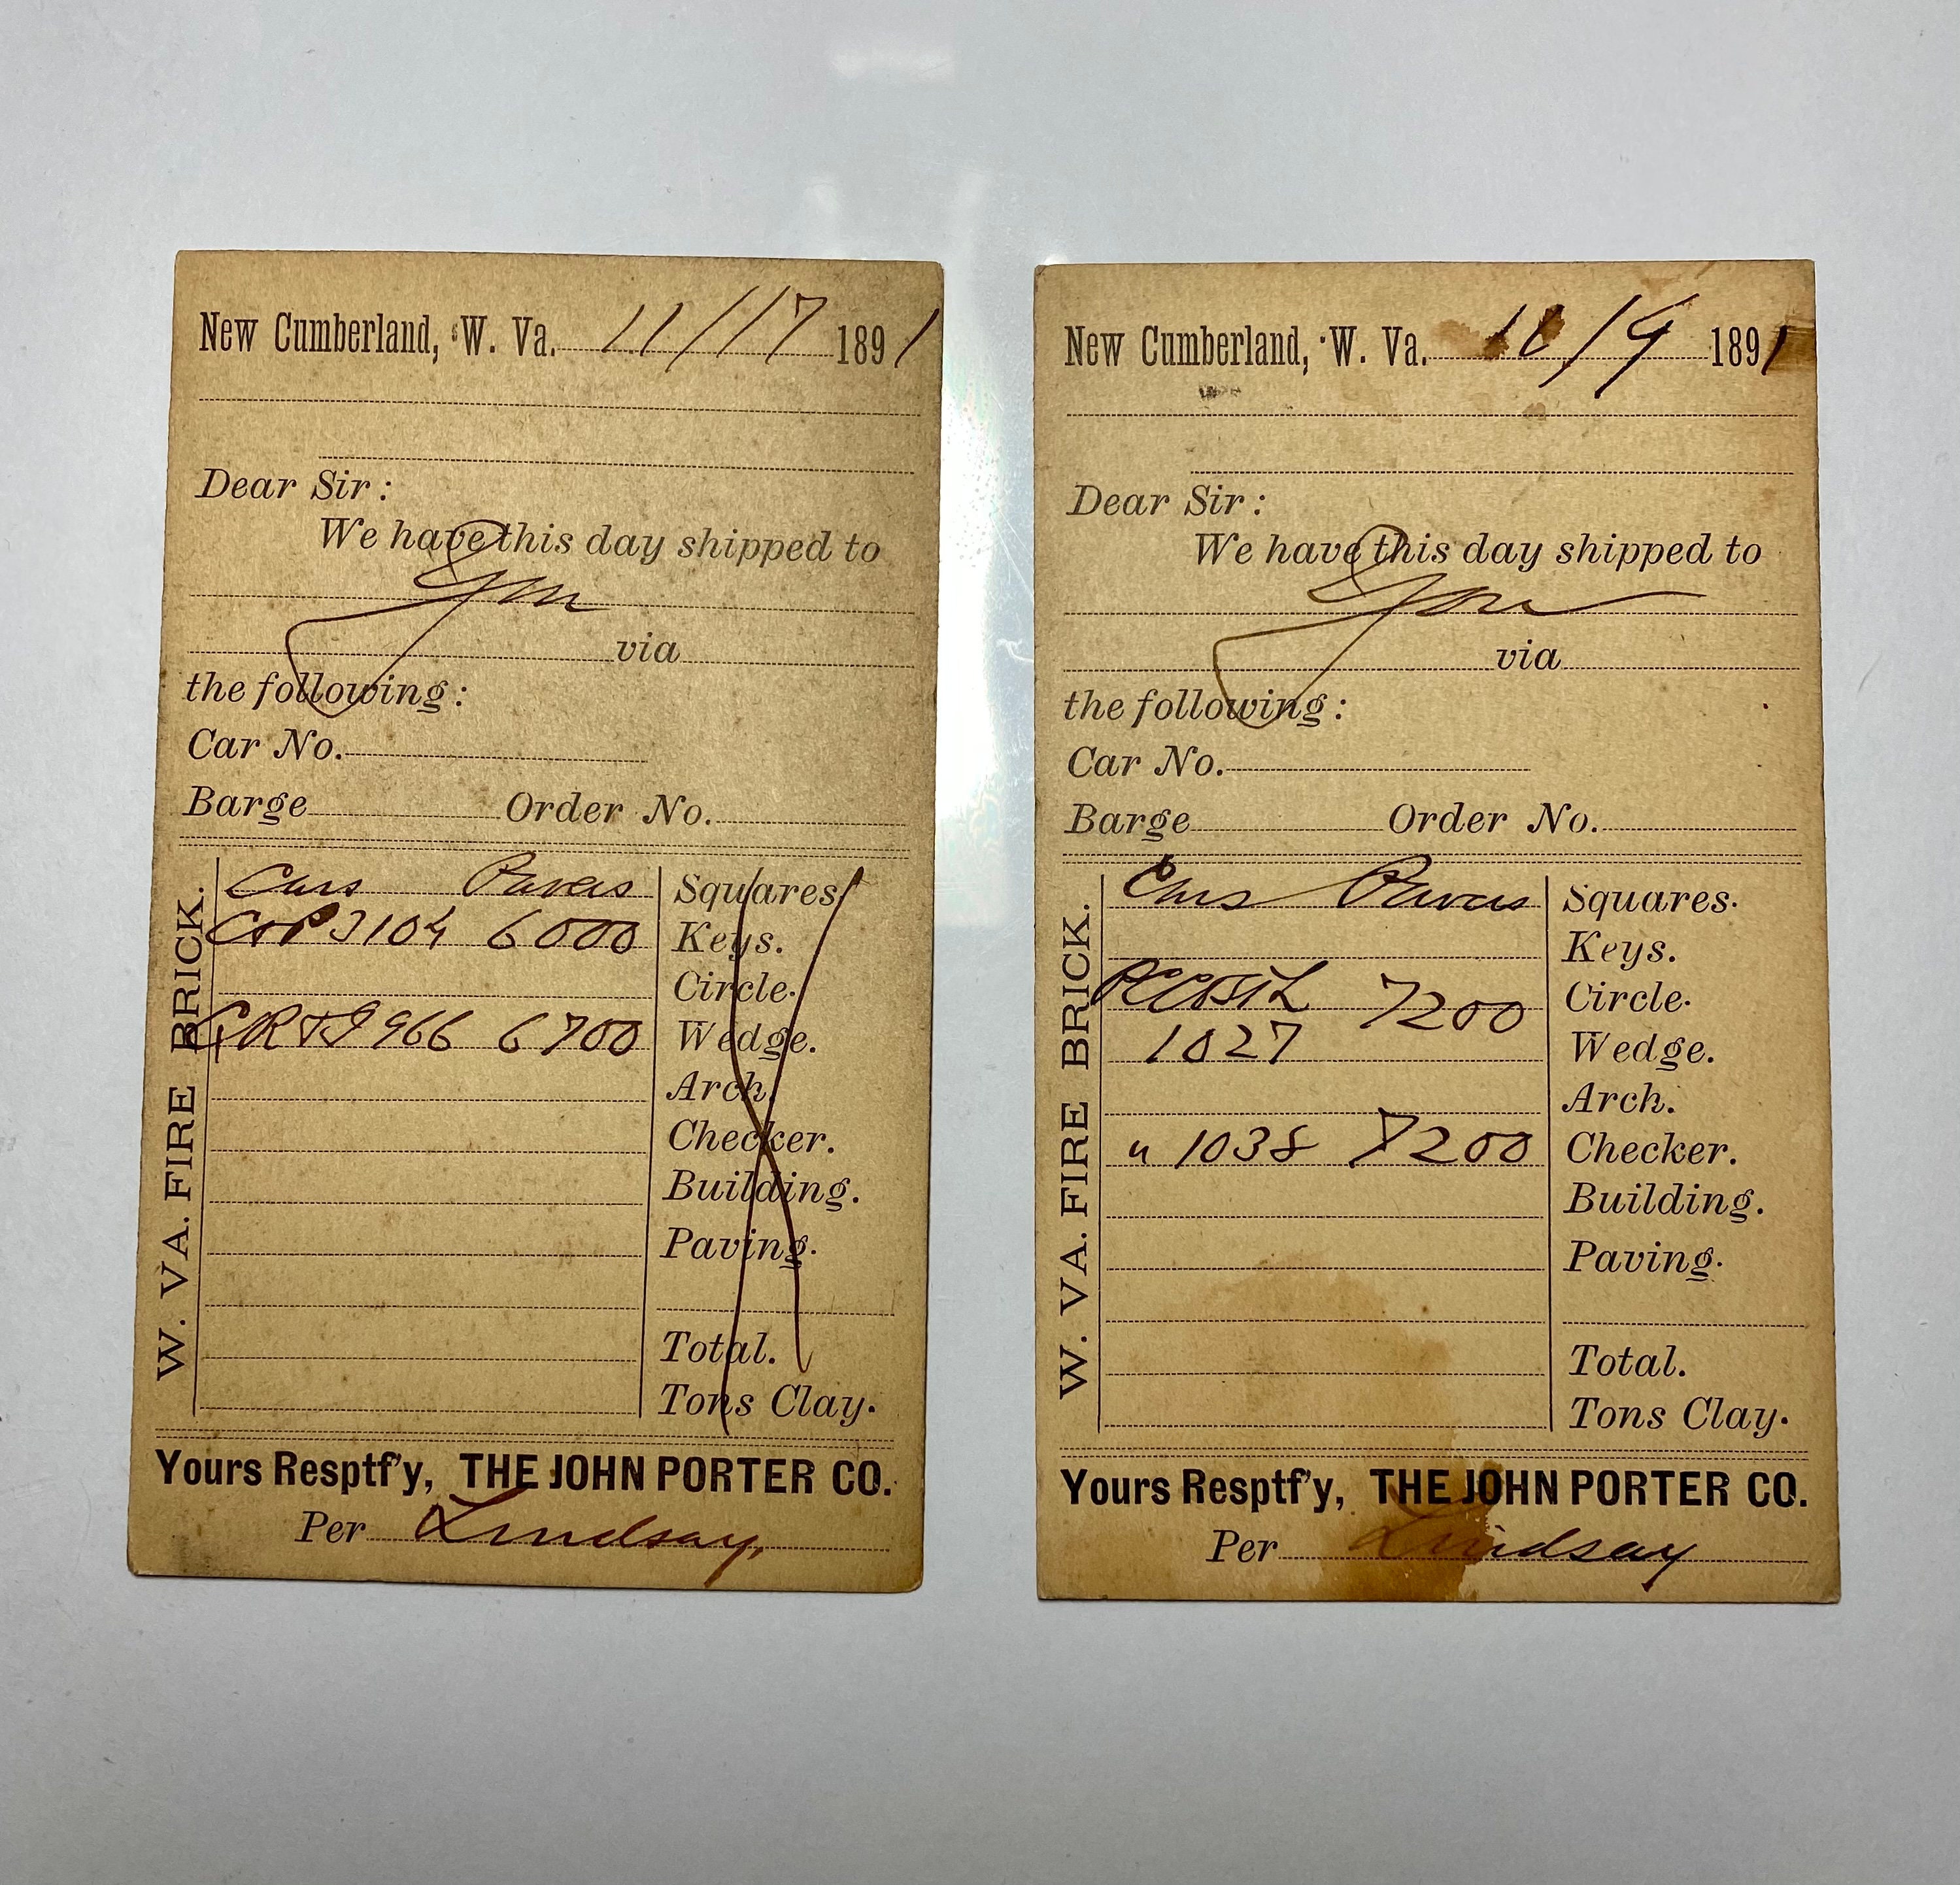 New Cumberland, W. Va. 11/17 1891
Dear Sir:
We have this day shipped to
You
via
the following:
Car No.
Barge Order No.
W. VA. FIRE BRICK.
Cars Pavers Squares
3104 6000 Keys.
Circle.
966 6700 Wedge.
Arch.
Checker.
Building.
Paving.
Total.
Tons Clay.
Yours Resptf'y, THE JOHN PORTER CO.
Per Lindsay,
New Cumberland, W. Va. 10/9 1891
Dear Sir:
We have this day shipped to
You
via
the following:
Car No.
Barge Order No.
W. VA. FIRE BRICK.
Cars Pavers Squares.
Keys.
7200 Circle.
1027 Wedge.
Arch.
" 1038 7200 Checker.
Building.
Paving.
Total.
Tons Clay.
Yours Resptf'y, THE JOHN PORTER CO.
Per Lindsay